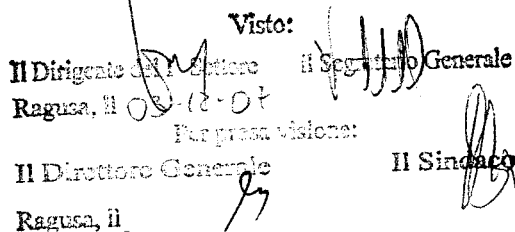 Visto:
Il Dirigente del I° Settore Il Segretario Generale
Ragusa, il 03-12-07
Per presa visione:
Il Direttore Generale Il Sindaco
Ragusa, il